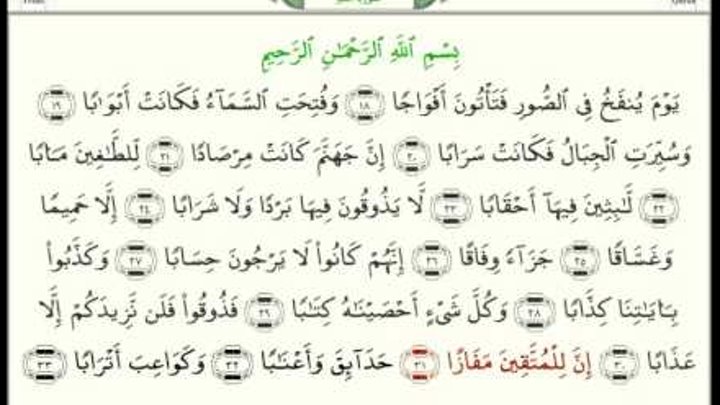 بِسْمِ ٱللَّهِ ٱلرَّحْمَٰنِ ٱلرَّحِيمِ
يَوْمَ يُنفَخُ فِى ٱلصُّورِ فَتَأْتُونَ أَفْوَاجًا ١٨ وَفُتِحَتِ ٱلسَّمَآءُ فَكَانَتْ أَبْوَٰبًا ١٩
وَسُيِّرَتِ ٱلْجِبَالُ فَكَانَتْ سَرَابًا ٢٠ إِنَّ جَهَنَّمَ كَانَتْ مِرْصَادًا ٢١ لِّلطَّٰغِينَ مَـَٔابًا
٢٢ لَّٰبِثِينَ فِيهَآ أَحْقَابًا ٢٣ لَّا يَذُوقُونَ فِيهَا بَرْدًا وَلَا شَرَابًا ٢٤ إِلَّا حَمِيمًا
وَغَسَّاقًا ٢٥ جَزَآءً وِفَاقًا ٢٦ إِنَّهُمْ كَانُوا۟ لَا يَرْجُونَ حِسَابًا ٢٧ وَكَذَّبُوا۟
بِـَٔايَٰتِنَا كِذَّابًا ٢٨ وَكُلَّ شَىْءٍ أَحْصَيْنَٰهُ كِتَٰبًا ٢٩ فَذُوقُوا۟ فَلَن نَّزِيدَكُمْ إِلَّا
عَذَابًا ٣٠ إِنَّ لِلْمُتَّقِينَ مَفَازًا ٣١ حَدَآئِقَ وَأَعْنَٰبًا ٣٢ وَكَوَاعِبَ أَتْرَابًا ٣٣